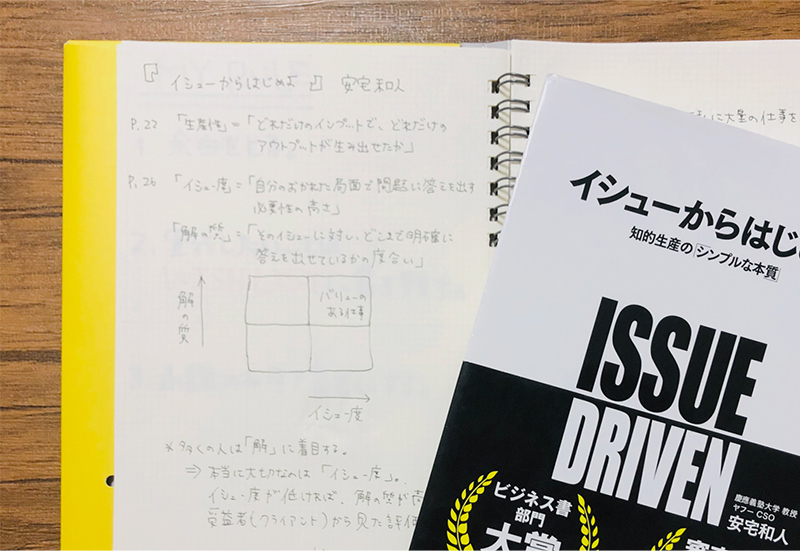 『イシューからはじめよ』 安宅和人
P.22 「生産性」=「どれだけのインプットで、どれだけの
アウトプットが生み出せたか」
P.26 「イシュー度」=「自分のおかれた局面で問題に答えを出す
必要性の高さ」
「解の質」=「そのイシューに対し、どこまで明確に
答えを出せているかの度合い」
解の質
バリューの
ある仕事
イシュー度
*多くの人は「解」に着目する。
⇒ 本当に大切なのは「イシュー度」。
イシュー度が低ければ、解の質が
受益者(クライアント)から見た評価
に大量の仕事を
イシューからはじ
知的生産の「シンプルな本質」
ISSUE
DRIVEN
慶應義塾大学 教授
ヤフー CSO
安宅和人
ビジネス書
部門
大賞